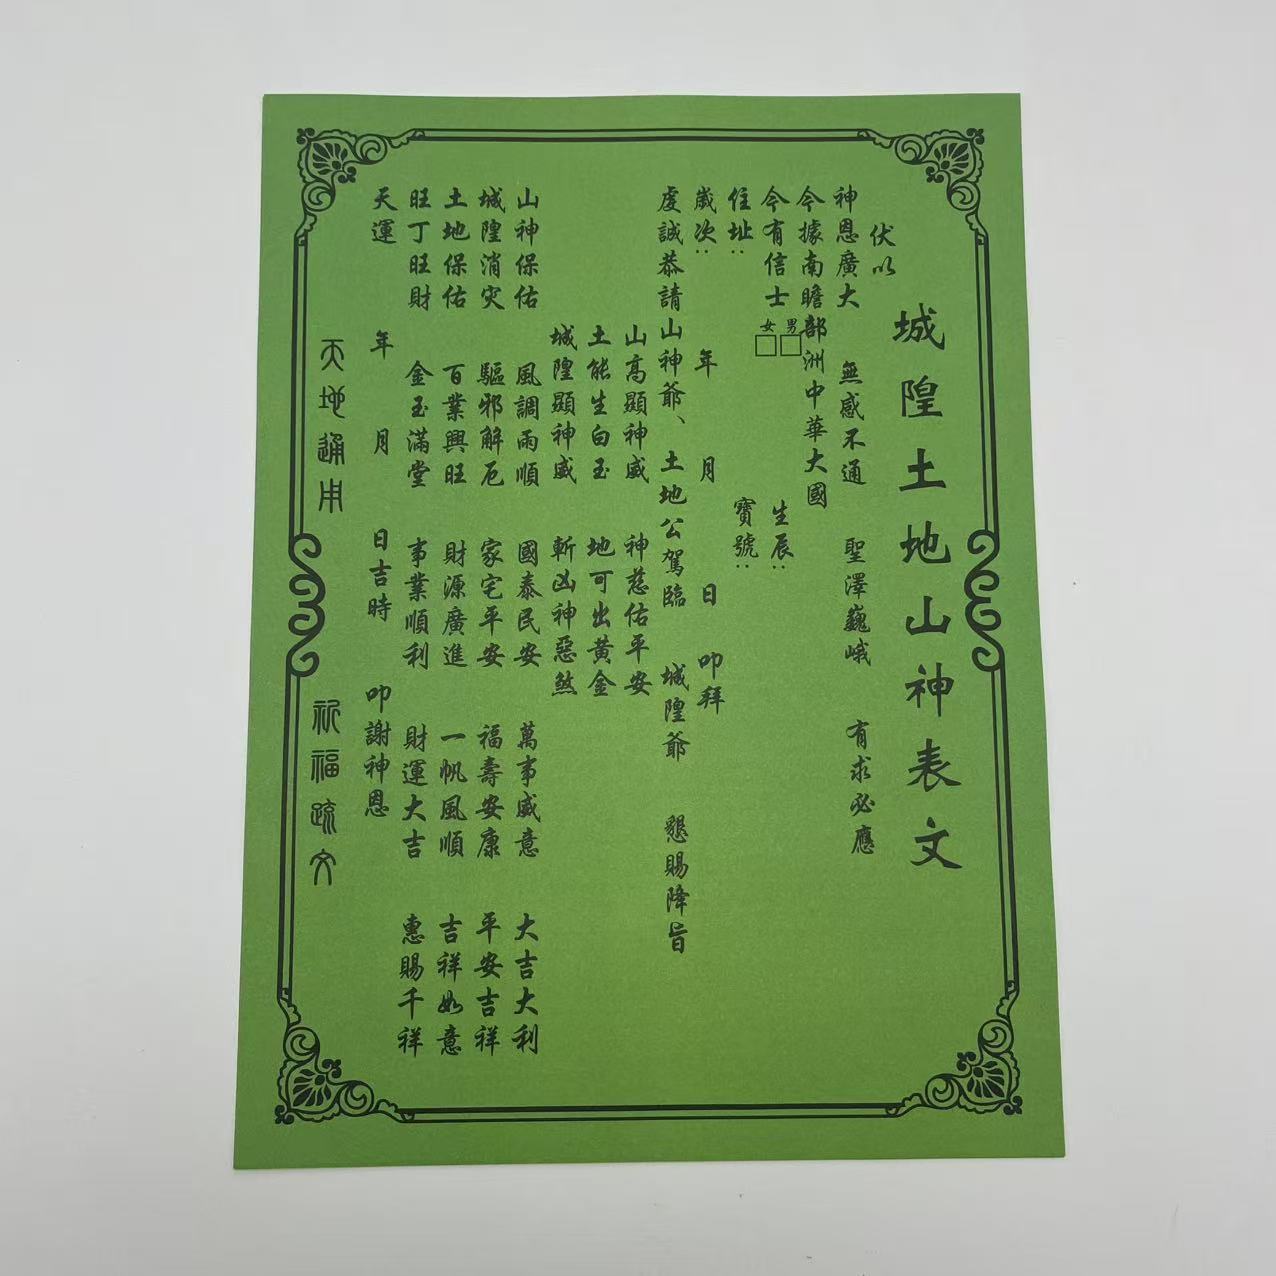 城隍土地山神表文
伏以
神恩廣大 無感不通 聖澤巍峨 有求必應
今據南瞻部洲中華大國
今有信士 男□ 女□ 生辰:
住址: 寶號:
歲次: 年 月 日 叩拜
虔誠恭請山神爺、土地公駕臨 城隍爺 懇賜降旨
山高顯神威 神慈佑平安
土能生白玉 地可出黃金
城隍顯神威 斬凶神惡煞
山神保佑 風調雨順 國泰民安 萬事威意 大吉大利
城隍消災 驅邪解厄 家宅平安 福壽安康 平安吉祥
土地保佑 百業興旺 財源廣進 一帆風順 吉祥如意
旺丁旺財 金玉滿堂 事業順利 財運大吉 惠賜千祥
天運 年 月 日吉時 叩謝神恩
天地通用 祈福疏文